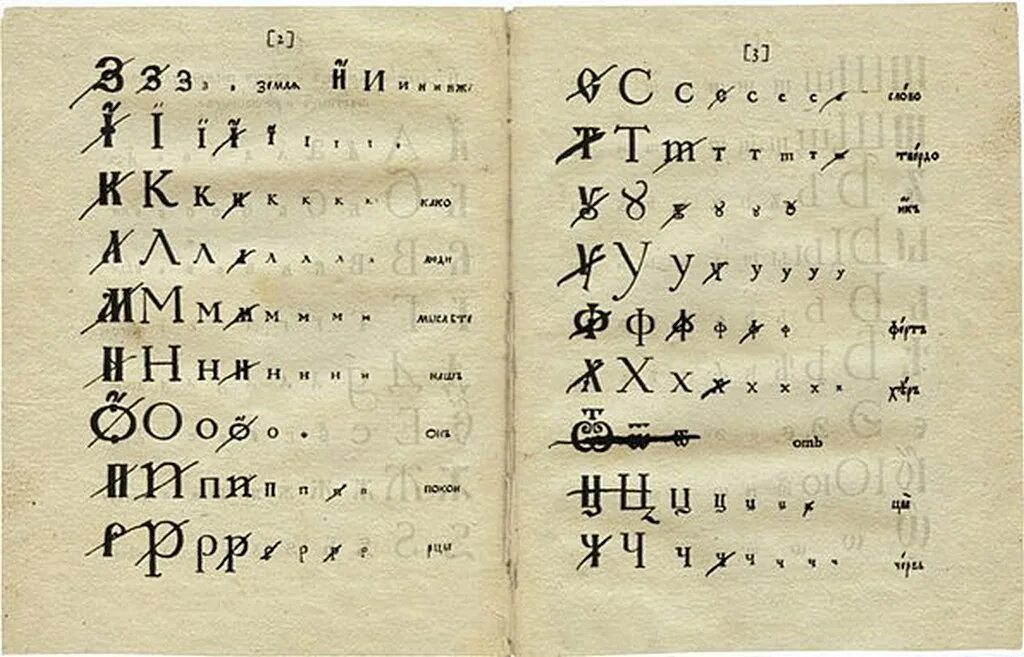 [2]
З З З з з земля И И И и и и иже
І І ї І ї і і і і
К К к к к к к к к како
Л Л л л л л л л люди
М М м м м м м м мыслѣте
Н Н н н н н н н нашъ
О О о о о онъ
П П п п п п п п покои
Р Р р р р р р рцы
[3]
С С с с с с с с слово
Т Т т т т т т т твердо
Ꙋ Ꙋ ꙋ ꙋ ꙋ ꙋ икъ
У У у у у у у у
Ф Ф ф ф ф ф фертъ
Х Х х х х х х х хѣръ
Ѿ ѿ ѿ отъ
Ц Ц ц ц ц ц ц цы
Ч Ч ч ч ч ч ч ч червь